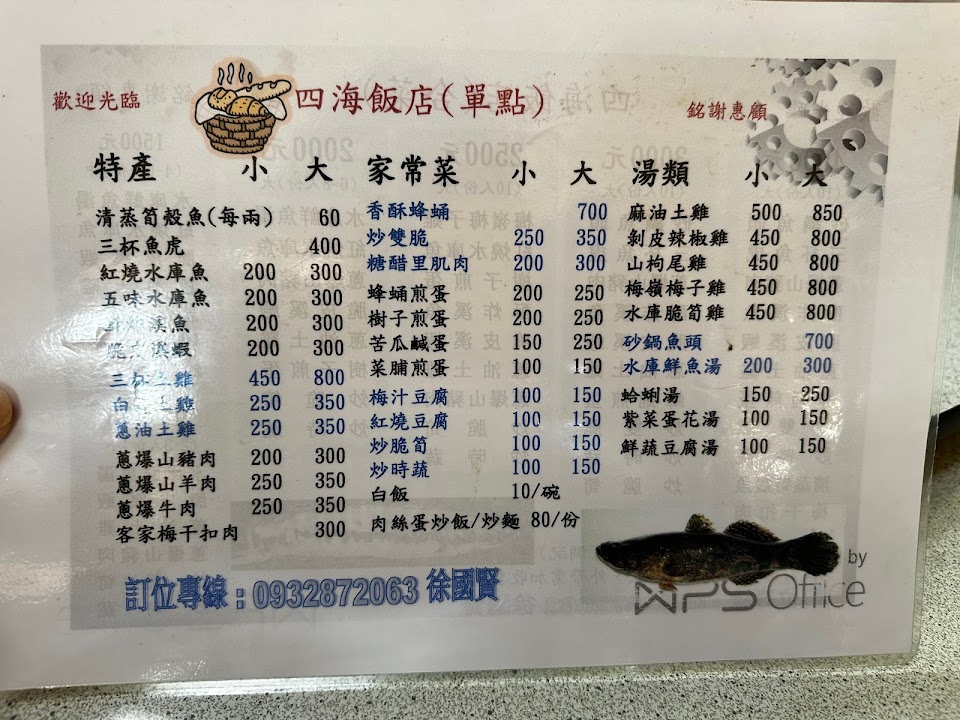 歡迎光臨
四海飯店(單點)
銘謝惠顧
特產 小 大
清蒸筍殼魚(每兩) 60
三杯魚虎 400
紅燒水庫魚 200 300
五味水庫魚 200 300
溪魚 200 300
溪蝦 200 300
三杯土雞 450 800
白 土雞 250 350
蔥油土雞 250 350
蔥爆山豬肉 200 300
蔥爆山羊肉 250 350
蔥爆牛肉 250 350
客家梅干扣肉 300
家常菜 小 大
香酥蜂蛹 700
炒雙脆 250 350
糖醋里肌肉 200 300
蜂蛹煎蛋 200 250
樹子煎蛋 200 250
苦瓜鹹蛋 150 250
菜脯煎蛋 100 150
梅汁豆腐 100 150
紅燒豆腐 100 150
炒脆筍 100 150
炒時蔬 100 150
白飯 10/碗
肉絲蛋炒飯/炒麵 80/份
湯類 小 大
麻油土雞 500 850
剝皮辣椒雞 450 800
山枸尾雞 450 800
梅嶺梅子雞 450 800
水庫脆筍雞 450 800
砂鍋魚頭 700
水庫鮮魚湯 200 300
蛤蜊湯 150 250
紫菜蛋花湯 100 150
鮮蔬豆腐湯 100 150
訂位專線：0932872063 徐國賢
by
WPS Office